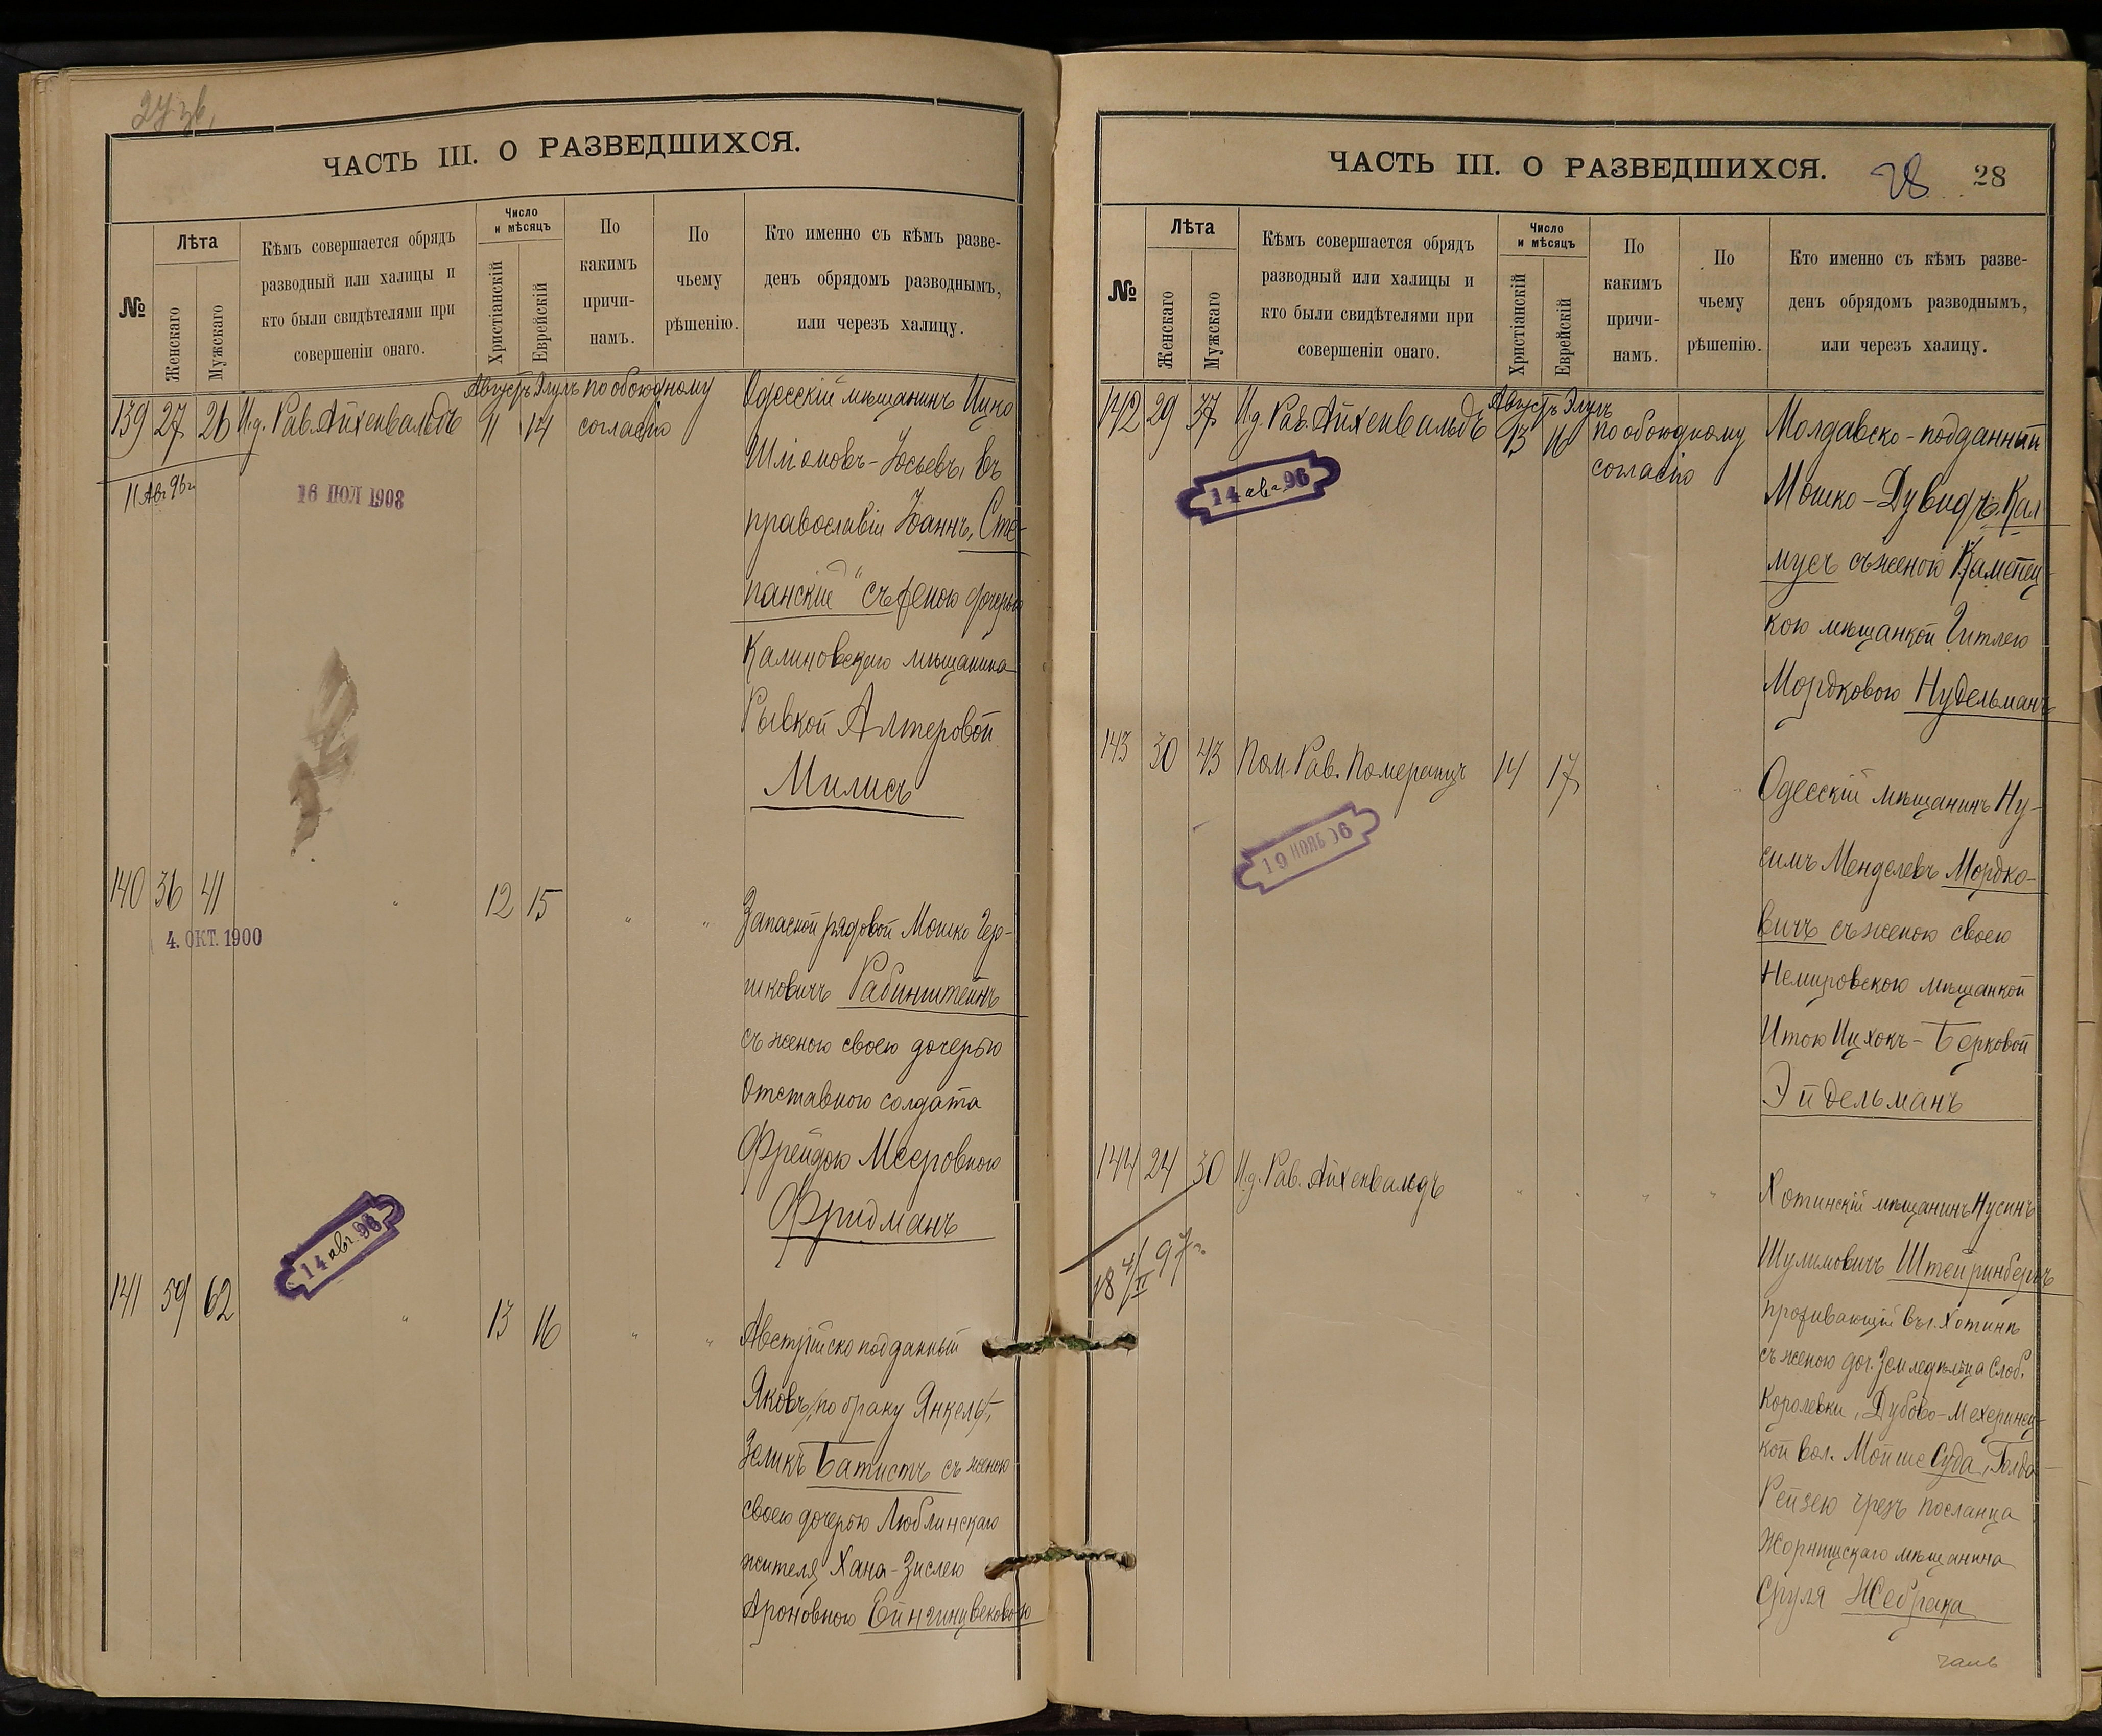 27 зв.
ЧАСТЬ III. О РАЗВЕДШИХСЯ.
№
Лѣта
Женскаго
Мужскаго
Кѣмъ совершается обрядъ
разводный или халицы и
кто были свидѣтелями при
совершеніи онаго.
Число
и мѣсяцъ
Христіанскій
Еврейскій
По
какимъ
причи-
намъ.
По
чьему
рѣшенію.
Кто именно съ кѣмъ разве-
денъ обрядомъ разводнымъ,
или черезъ халицу.
139 27 26 И.д. Рав. Айхенвальдъ
Августъ Элулъ
11 14
по обоюдному
согласію
11 Авг 96 г.
16 ІЮЛ 1903
Одесскій мѣщанинъ Ицко
Шліомовъ-Іосьевъ, въ
православіи Іоаннъ, Сте-
панскій" съ женою дочерью
Калиновскаго мѣщанина
Рывкой Алтеровой
Милисъ
140 36 41 " 12 15 " "
4. ОКТ. 1900
Запасной рядовой Мошко Гер-
шковичъ Рабинштейнъ
съ женою своею дочерью
Отставного солдата
Фрейдою Мееровною
Фридманъ
14 авг. 96
141 59 62 " 13 16 " "
Австрійско подданный
Яковъ, по браку Янкель,
Зеликъ Батистъ съ женою
своею дочерью Люблинскаго
жителя Хана-Зислею
Ароновною
ЧАСТЬ III. О РАЗВЕДШИХСЯ.
28 28
№
Лѣта
Женскаго
Мужскаго
Кѣмъ совершается обрядъ
разводный или халицы и
кто были свидѣтелями при
совершеніи онаго.
Число
и мѣсяцъ
Христіанскій
Еврейскій
По
какимъ
причи-
намъ.
По
чьему
рѣшенію.
Кто именно съ кѣмъ разве-
денъ обрядомъ разводнымъ,
или черезъ халицу.
142 29 37 И.д. Рав. Айхенвальдъ
Августъ Элулъ
13 16
по обоюдному
согласію
14 авг. 96
Молдавско-подданный
Мошко-Дувидъ Кал
мусъ съ женою Каменец-
кою мѣщанкой Гитлею
Мордковою Нудельманъ
143 30 43 Пом. Рав. Померанцъ 14 17 " "
19 НОЯБ 96
Одесскій мѣщанинъ Ну-
симъ Менделевъ Мордко-
вичъ съ женою своею
Немировскою мѣщанкой
Итою Ицхокъ-Берковой
Эйдельманъ
144 24 30 И.д. Рав. Айхенвальдъ " " " "
Хотинскій мѣщанинъ Нусинъ
Шулимовичъ Штейринбергъ
проживающій въ г. Хотинѣ
съ женою доч. Земледѣльца Слоб.
Королевки, Дубово-Мехеринец-
кой вол. Мойше Суда, Голда
Рейзею чрезъ посланца
Жорнищскаго мѣщанина
Сруля Жебрака